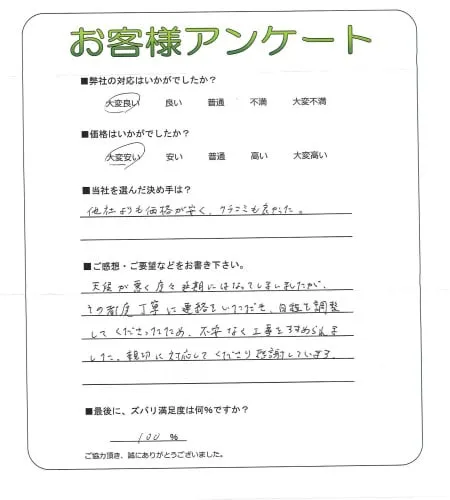 お客様アンケート
■弊社の対応はいかがでしたか？
大変良い 良い 普通 不満 大変不満
■価格はいかがでしたか？
大変安い 安い 普通 高い 大変高い
■当社を選んだ決め手は？
他社よりも価格が安く、クチコミも良かった。
■ご感想・ご要望などをお書き下さい。
天候が悪く度々延期にはなってしまいましたが、
その都度丁寧に連絡をいただき、日程を調整
してくださったため、不安なく工事をすすめられま
した。親切に対応してくださり感謝しています。
■最後に、ズバリ満足度は何%ですか？
100 %
ご協力頂き、誠にありがとうございました。